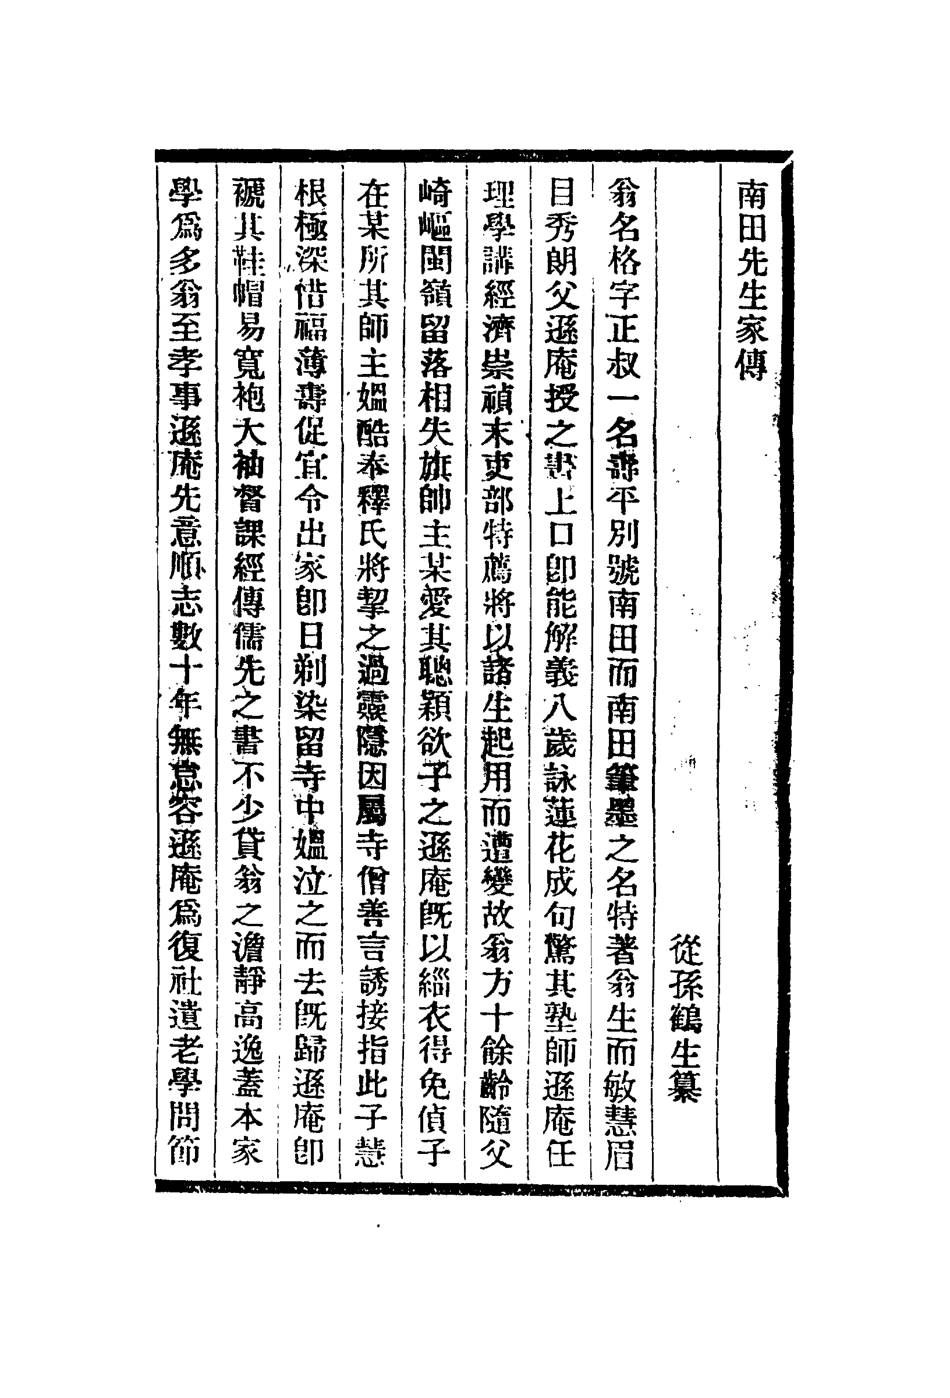 南田先生家傳
從孫鶴生纂
翁名格字正叔一名壽平別號南田而南田筆墨之名特著翁生而敏慧眉
目秀朗父遜庵授之書上口卽能解義八歲詠蓮花成句驚其塾師遜庵任
理學講經濟崇禎末吏部特薦將以諸生起用而遭變故翁方十餘齡隨父
崎嶇閩嶺留落相失旗帥主某愛其聰穎欲子之遜庵旣以緇衣得免偵子
在某所其師主媼酷奉釋氏將挈之過靈隱因屬寺僧善言誘接指此子慧
根極深惜福薄壽促宜令出家卽日剃染留寺中媼泣之而去旣歸遜庵卽
褫其鞋帽易寬袍大袖督課經傳儒先之書不少貸翁之澹靜高逸蓋本家
學爲多翁至孝事遜庵先意順志數十年無怠容遜庵爲復社遺老學問節